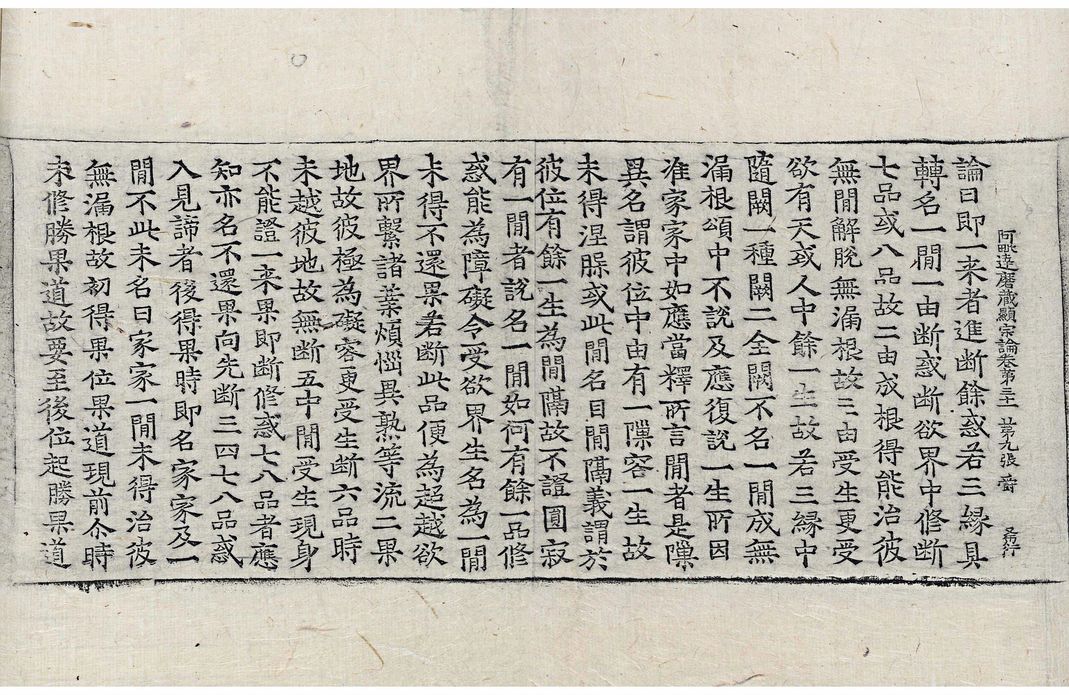 阿毗達磨藏顯宗論卷第三十二 第九張 爵
論曰即一来者進断餘惑若三縁具
轉名一閒一由断惑断欲界中修断
七品或八品故二由成根得能治彼
無閒解脫無漏根故三由受生更受
欲有天或人中餘一生故若三縁中
隨闕一種闕二全闕不名一閒成無
漏根頌中不說及應復說一生所因
准家家中如應當釋所言閒者是隟
異名謂彼位中由有一隟容一生故
未得涅槃或此閒名目閒隔義謂於
彼位有餘一生為閒隔故不證圓寂
有一閒者說名一閒如何有餘一品修
惑能為障礙令受欲界生名為一閒
未得不還果若断此品便為超越欲
界所繫諸業煩惱異熟等流二果
地故彼極為礙容更受生断六品時
未越彼地故無断五中閒受生現身
不能證一来果即断修惑七八品者應
知亦名不還果向先断三四七八品惑
入見諦者後得果時即名家家及一
閒不此未名曰家家一閒未得治彼
無漏根故初得果位果道現前尒時
未修勝果道故要至後位起勝果道